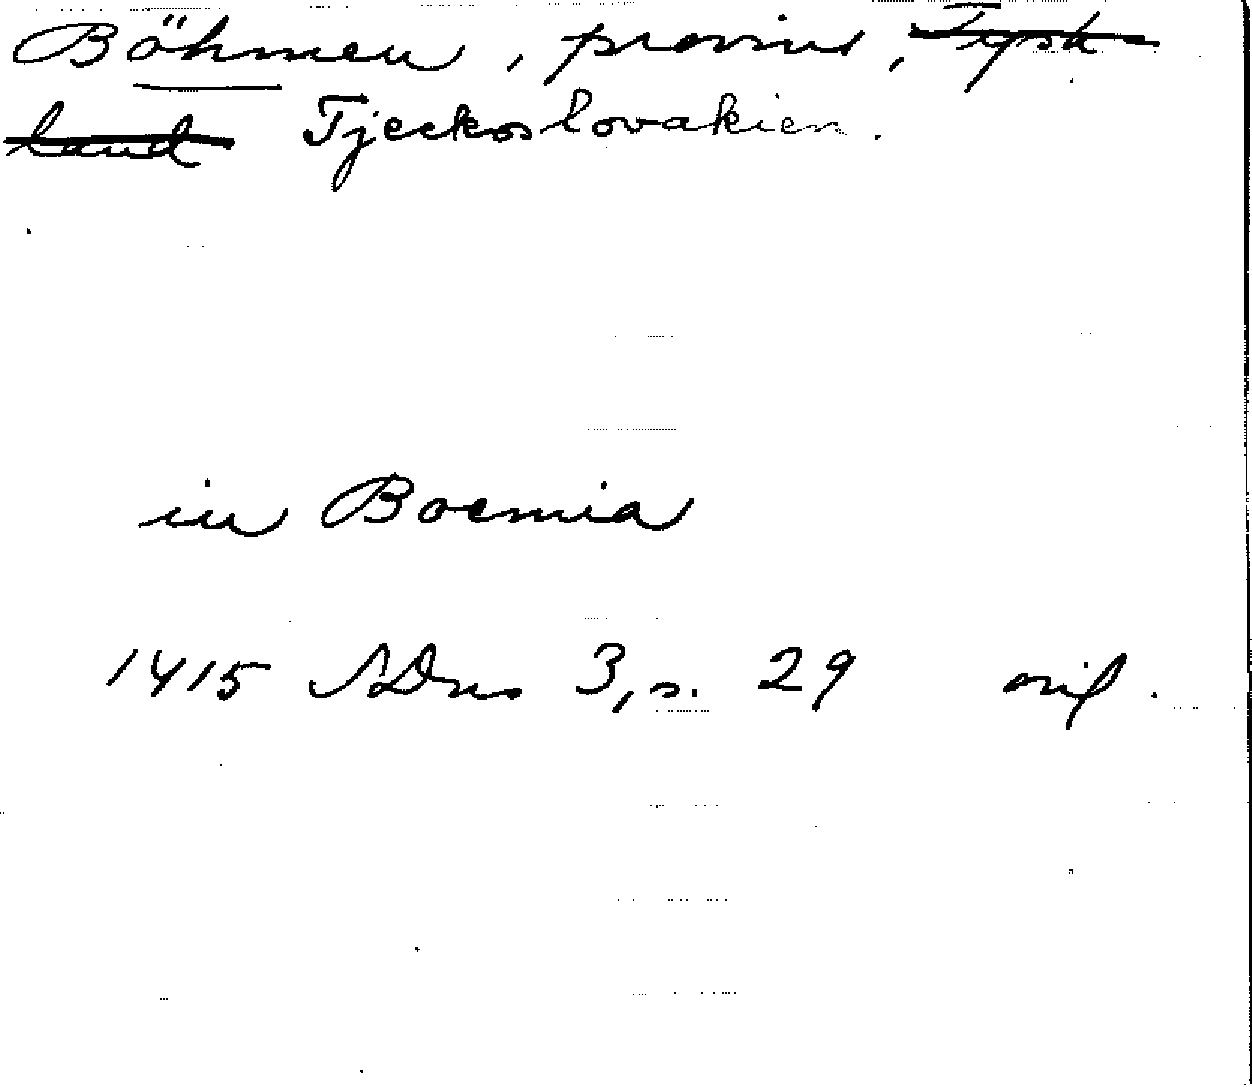 Böhmen, provins, Tysk
land Tjeckoslovakien.
in Boemia
1415 SDns 3, s. 29 orig.